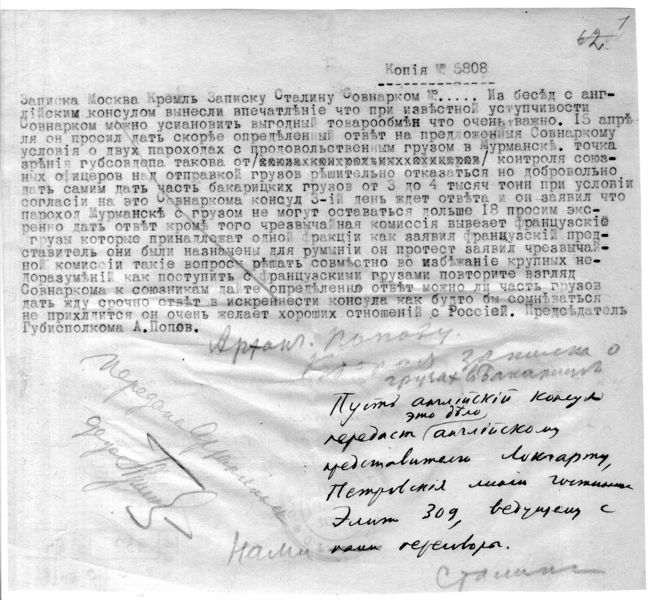 1
62.
Копія № 5808
Записка Москва Кремль Записку Сталину Совнарком №..... Из бесѣд с анг-
лійским консулом вынесли впечатлѣніе что при извѣстной уступчивости
Совнарком можно усиановить выгодный товарообмѣн что очень важно. 15 апрѣ
ля он просил дать скорѣе опредѣленный отвѣт на предложенныя Совнаркому
условія о двух пароходах с продовольственным грузом в Мурманскѣ. точка
зрѣнія губсовдепа такова от/ / контроля союз-
ных офицеров над отправкой грузов рѣшительно отказаться но добровольно
дать самим дать часть бакарицких грузов от 3 до 4 тысяч тонн при условіи
согласіи на это Совнаркома консул 3-ій день ждет отвѣта и он заявил что
пароход Мурманскѣ с грузом не могут оставаться дольше 18 просим экс-
ренно дать отвѣт кромѣ того чрезвычайная комиссія вывезет французскіе
грузы которые принадлежат одной фракціи как заявил французскій пред-
ставитель они были назначены для румыніи он протест заявил чрезвычай-
ной комиссіи такіе вопросы рѣшать совмѣстно во избѣжаніе крупных не-
доразумѣній как поступить с французскими грузами повторите взгляд
Совнаркома к союзникам дайте опредѣленно отвѣт можно ли часть грузов
дать жду срочно отвѣт в искренности консула как будто бы сомнѣваться
не приходится он очень желает хороших отношеній с Россіей. Предсѣдатель
Губисполкома А.Попов.
Арханг. Попову.
записка о
грузах в Бакарицѣ
Передана
Пусть англійскій консул
это дѣло
передаст англійскому
представителю Локкарту,
Петровскія линіи гостиница
Элит 309, ведущему с
нами нами переговоры.
Сталин